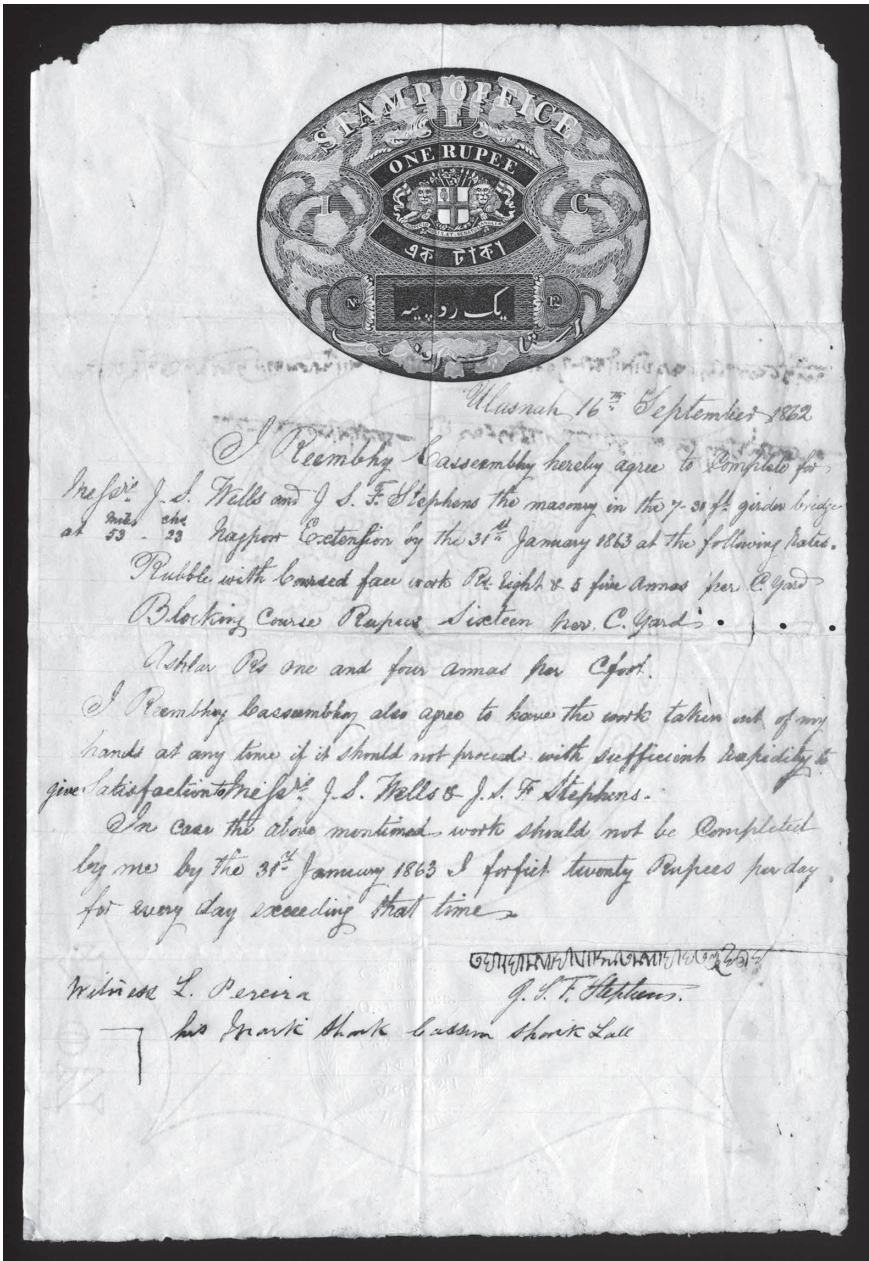 STAMP OFFICE
E
ONE RUPEE
I C
এক টাকা
No 12
یک روپیہ
16th September 1862
I Reembhy Casseembhy hereby agree to Complete for
Messrs. J. S. Wells and J. S. F. Stephens the masonry in the 7-30 ft. girder bridge
at miles 53 - chs 23 Nagpoor Extension by the 31st January 1863 at the following Rates.
Rubble with Coursed face work Rs. Eight & 5 five Annas per C. Yard
Blocking Course Rupees Sixteen per. C. Yard
Ashlar Rs one and four annas per Cfoot.
I Reembhoy Casseembhoy also agree to have the work taken out of my
hands at any time if it should not proceed with sufficient Rapidity to
give Satisfaction to Messrs. J. S. Wells & J. S. F Stephens.
In case the above mentioned work should not be Completed
by me by the 31st January 1863 I forfiet twenty Rupees per day
for every day exceeding that time
J. S. F. Stephens.
Witness L. Pereira
his Mark Shaik Cassim Shaik Lall